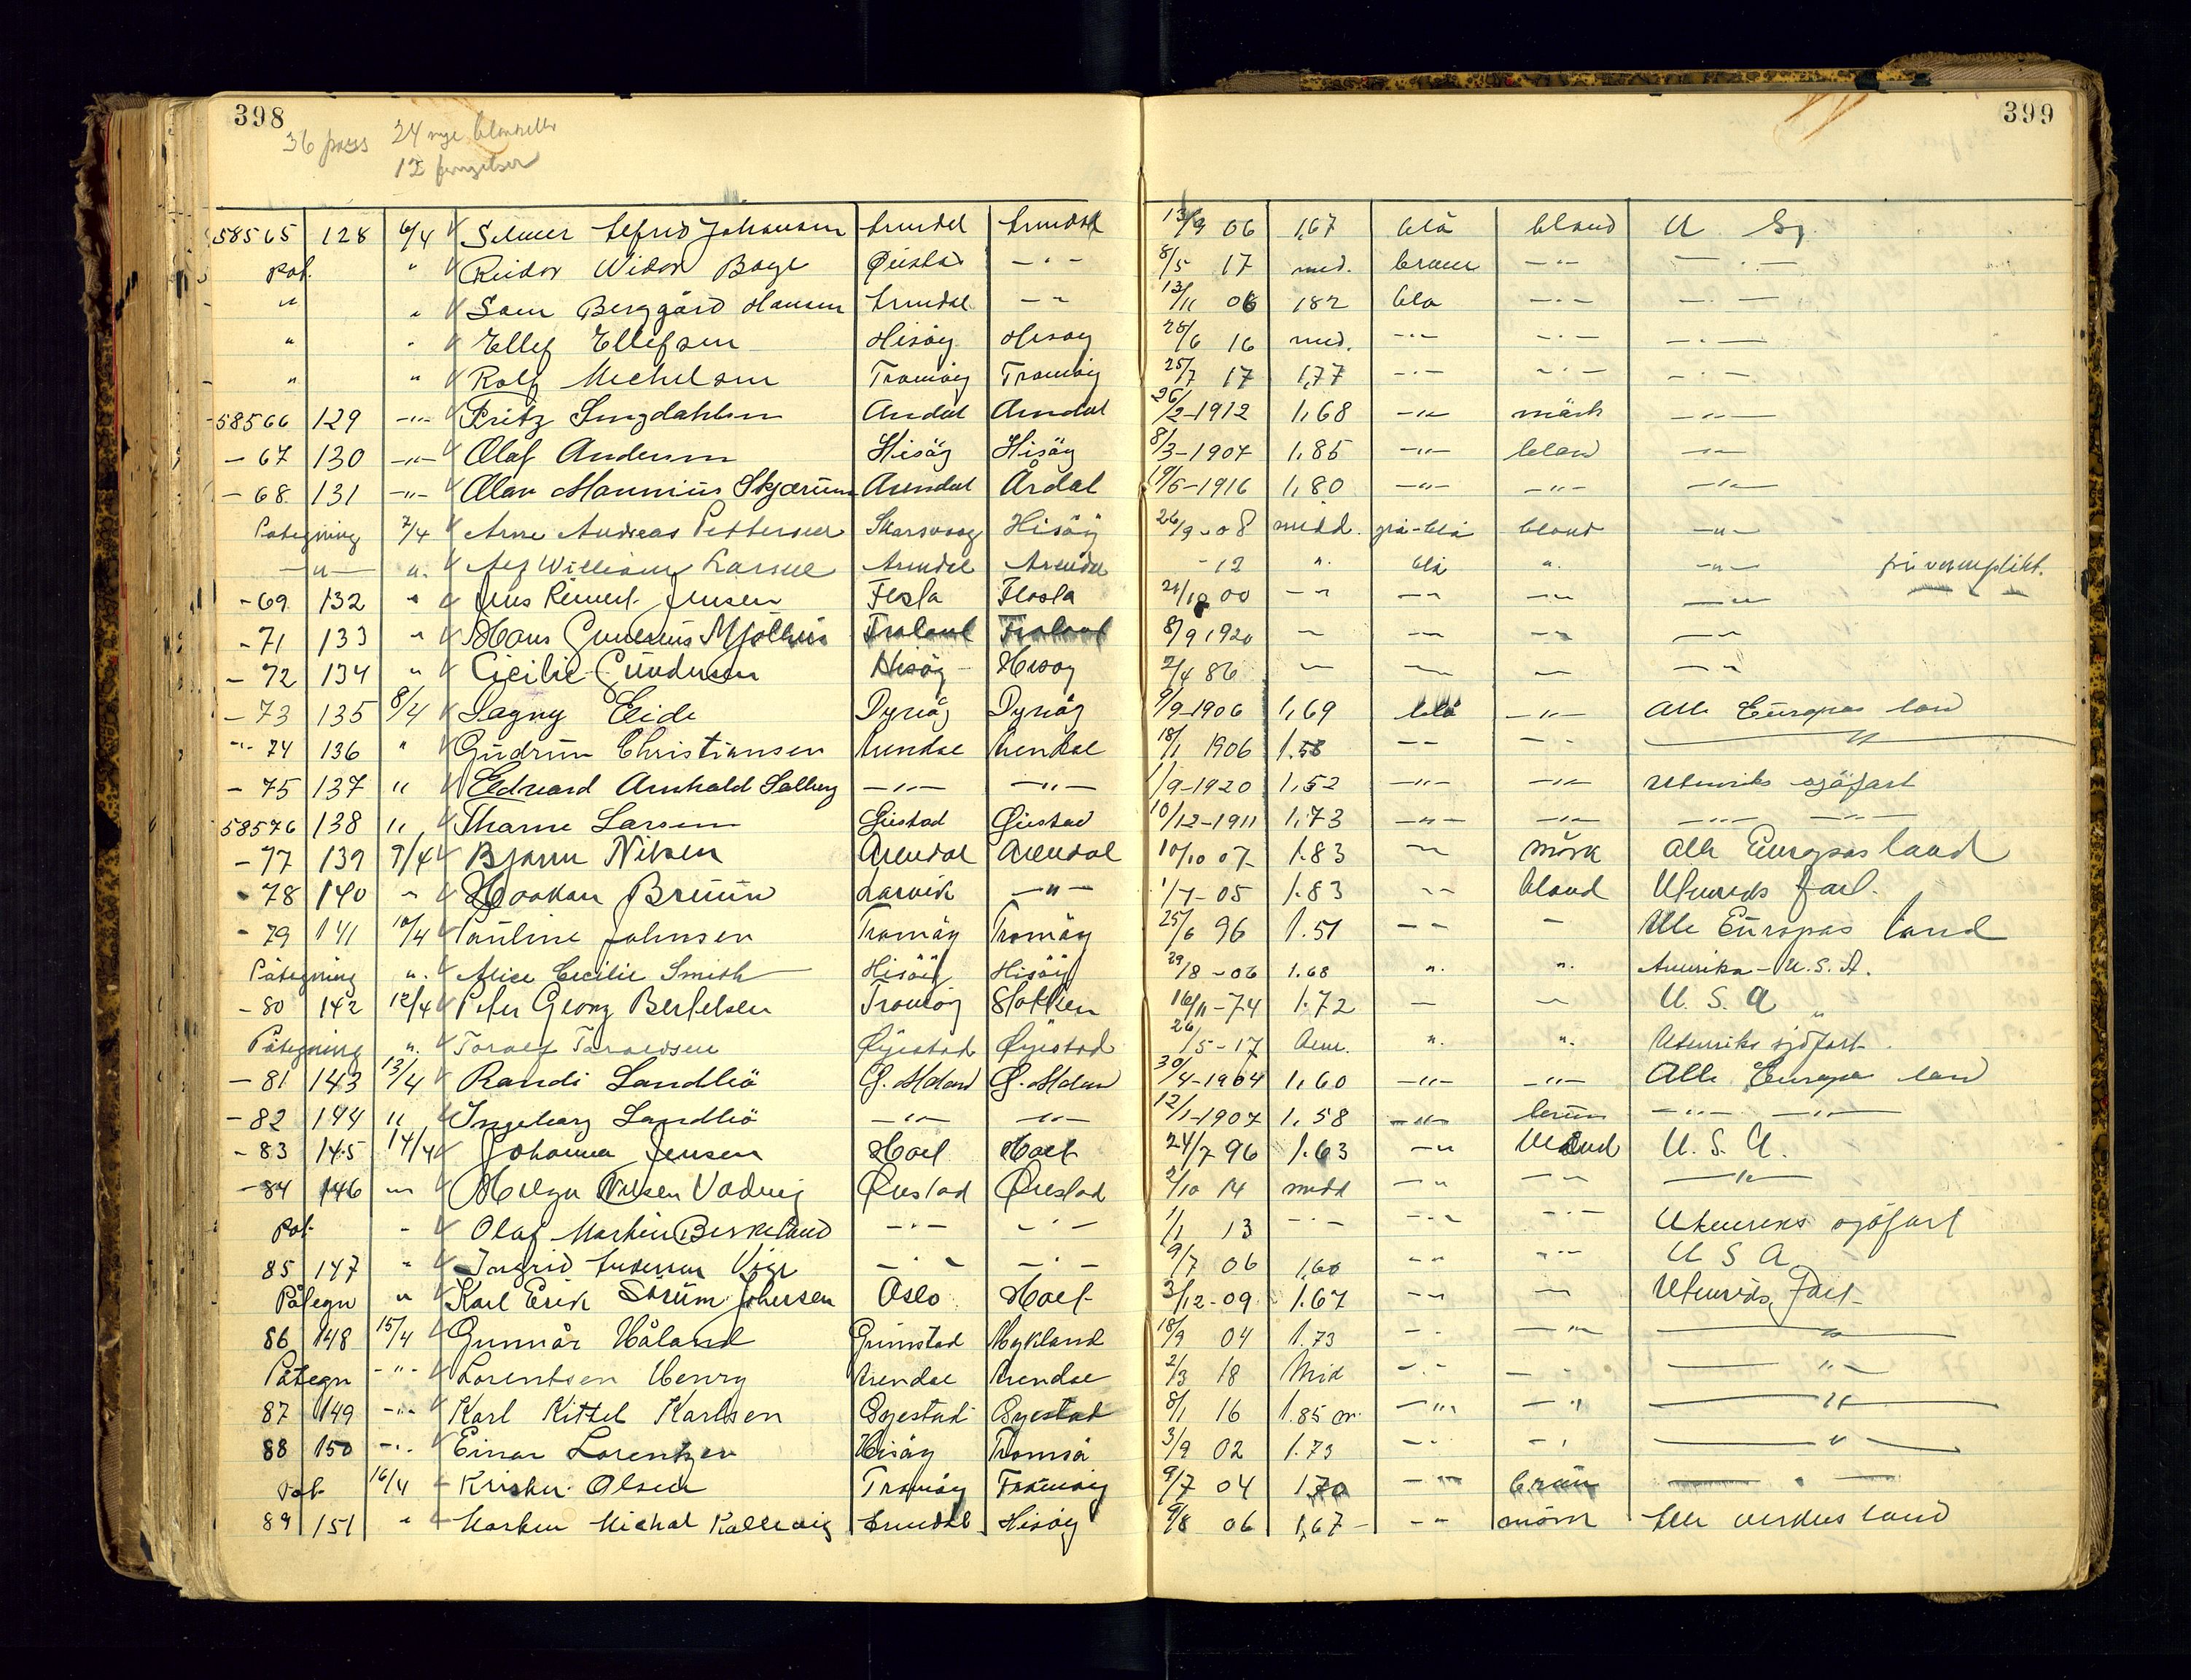 398
399
36 pass 24 nye
12
58565 128 6/4 Selmer Alfrid Johansen Arendal Arendal 13/9 06 1,67 blå blond U Sj
pat. " Reidar Vidar Bøge Øiestad -"- 8/5 17 med. braun -"- -"-
" " Sam Berggård Hansen Arendal -"- 13/11 06 182 blå -"- -"-
" " Ellef Ellefsen Hisøy Hisøy 28/6 16 med. -"- -"- -"-
" " Rolf Michelsen Tromøy Tromøy 25/7 17 1,77 -"- -"- -"-
58566 129 -"- Fritz Ljngdahlsen Arendal Arendal 26/2-1912 1,68 -"- mörk -"-
- 67 130 -"- Olaf Andersen Hisöy Hisöy 8/3-1907 1,85 -"- blond -"-
- 68 131 -"- Olav Mannius Skjærum Arendal Årdal 19/5-1916 1,80 -"- -"- -"-
Påtegning 7/4 Arne Andreas Pettersen Skarsvaag Hisöy 26/9-08 midd. grå-blå blond -"-
-"- ". Alf William Larsen Arendal Arendal -12 ". blå ". -"- fri vernplikt.
- 69 132 " Jens Reinert Jensen Flosta Flosta 21/10 00 -"- -"- -"- -"-
- 71 133 " Hans Gunerius Mjølhus Froland Froland 8/9 1920 - -"- -"- -"-
- 72 134 " Cicilie Gundersen Hisöy Hisøy 2/4 86 - - - -"-
- 73 135 8/4 Dagny Eide Dypvåg Dypvåg 9/9-1906 1,69 blå -"- Alle Europas land
-"- 74 136 " Gudrun Christiansen Arendal Arendal 18/1 1906 1.58 -- -"- "
- 75 137 " Edvard Arnhold Solberg -"- -"- 1/9-1920 1,52 -"- -"- Utenriks sjöfart
58576 138 " Tharne Larsen Öiestad Öiestad 10/12-1911 1,73 -"- -"- -"- -"-
- 77 139 9/4 Bjarne Nilsen Arendal Arendal 10/10 07 1.83 -"- mörk Alle Europas land
- 78 140 " Haakon Bruun Larvik -"- 1/7-05 1.83 -- blond Utenriks fart.
- 79 141 10/4 Pauline Johnsen Tromöy Tromöy 25/6 96 1.51 -- - Alle Europas land
Påtegning ". Alice Cecilie Smith Hisöy Hisöy 29/8-06 1.68 ". ". Amerika - U.S.A.
- 80 142 12/4 Peter Georg Bertelsen Tromöy Stokken 16/11-74 1.72 - - U. S. A "
Påtegning ". Toralf Taraldsen Øyestad Øyestad 26/5-17 ". ". Utenriks sjöfart.
- 81 143 13/4 Randi Sandbiö G. Moland G. Moland 30/4-1904 1,60 -"- -"- Alle Europas land
- 82 144 " Ingeborg Sandbiö -"- -"- 12/1-1907 1,58 -"- brun -"- -"-
- 83 145 14/4 Johanna Jensen Holt Holt 24/7 96 1.63 -"- blond U. S. A.
- 84 146 -"- Helga Nilsen Vadvig Øiestad Øiestad 2/10 14 midd -"- -"- -"-
pat. - Olaf Martin Birkeland -"- -"- 1/1 13 -"- -"- -"- Utenriks sjöfart
85 147 " Ingrid Andersen Vige -"- -"- 9/7 06 1,60 -- -"- U S A
Påtegn " Karl Erik Sörum Johnsen Oslo Holt 3/12-09 1.67 -"- - Utenriks fart
86 148 15/4 Gunnar Håland Grimstad Mykland 18/9 04 1.73 -"- -"- "
Påtegn -"- Lorentsen Henry Arendal Arendal 2/3 18 Mid -"- - " -"-
87 149 -"- Karl Kittel Karlsen Öyestad Öyestad 8/1 16 1.85 m. -"- -"- "
88 150 -"- Einar Lorentzen Hisöy Tromsø 3/9 02 1.73 -"- -" "
pat 16/4 Krister Olsen Tromöy Tromöy 9/7 04 1,70 -"- brun "
89 151 " Marten Michal Kallevig Arendal Hisöy 9/8 06 1,67 -"- mörk Alle verdens land